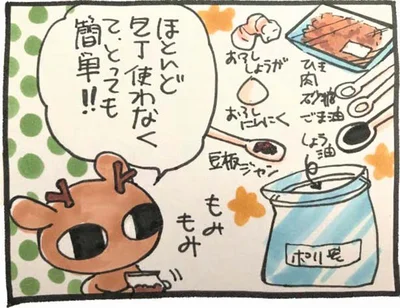 ほとんど
包丁使わなく
て、とっても
簡単!!
おろし
しょうが
おろし
にんにく
豆板
ジャン
ひき
肉
砂糖
ごま油
しょう
油
もみ
もみ
ポリ袋